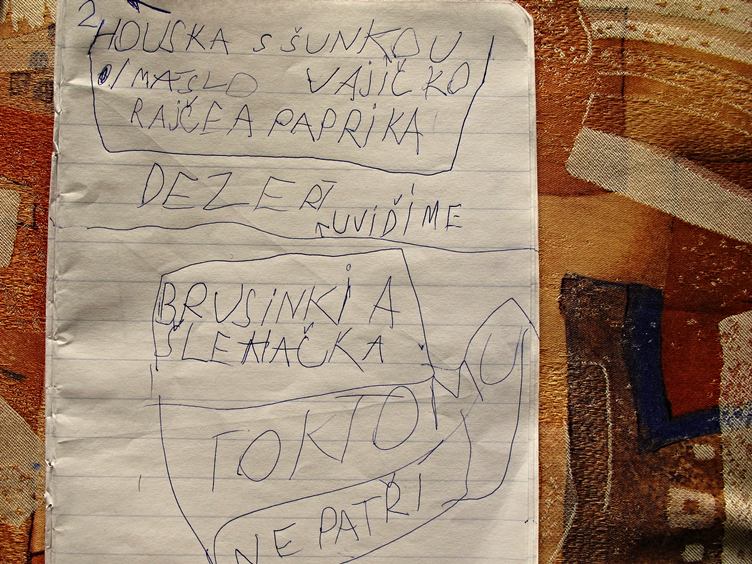 2
HOUSKA S ŠUNKOU
MÁSLO VAJÍČKO
RAJČE A PAPRIKA
DEZERT
UVIDÍME
BRUSINKI A
ŠLEHAČKA
TOKTOMU
NEPATŘÍ